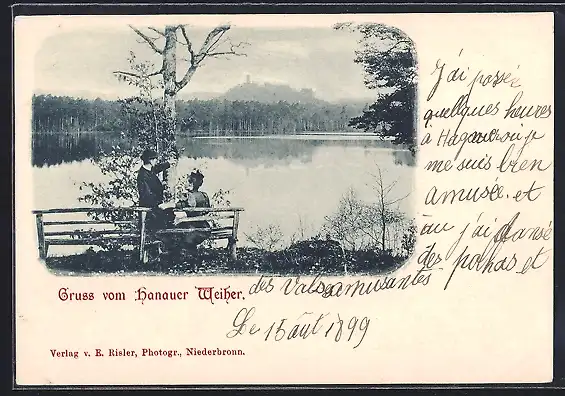 j'ai passé
quelques heures
à Hagenau où je
me suis bien
amusée et
où j'ai dansé
des polkas et
des valses amusantes
Le 15 août 1899
Gruss vom Hanauer Weiher.
Verlag v. E. Risler, Photogr., Niederbronn.